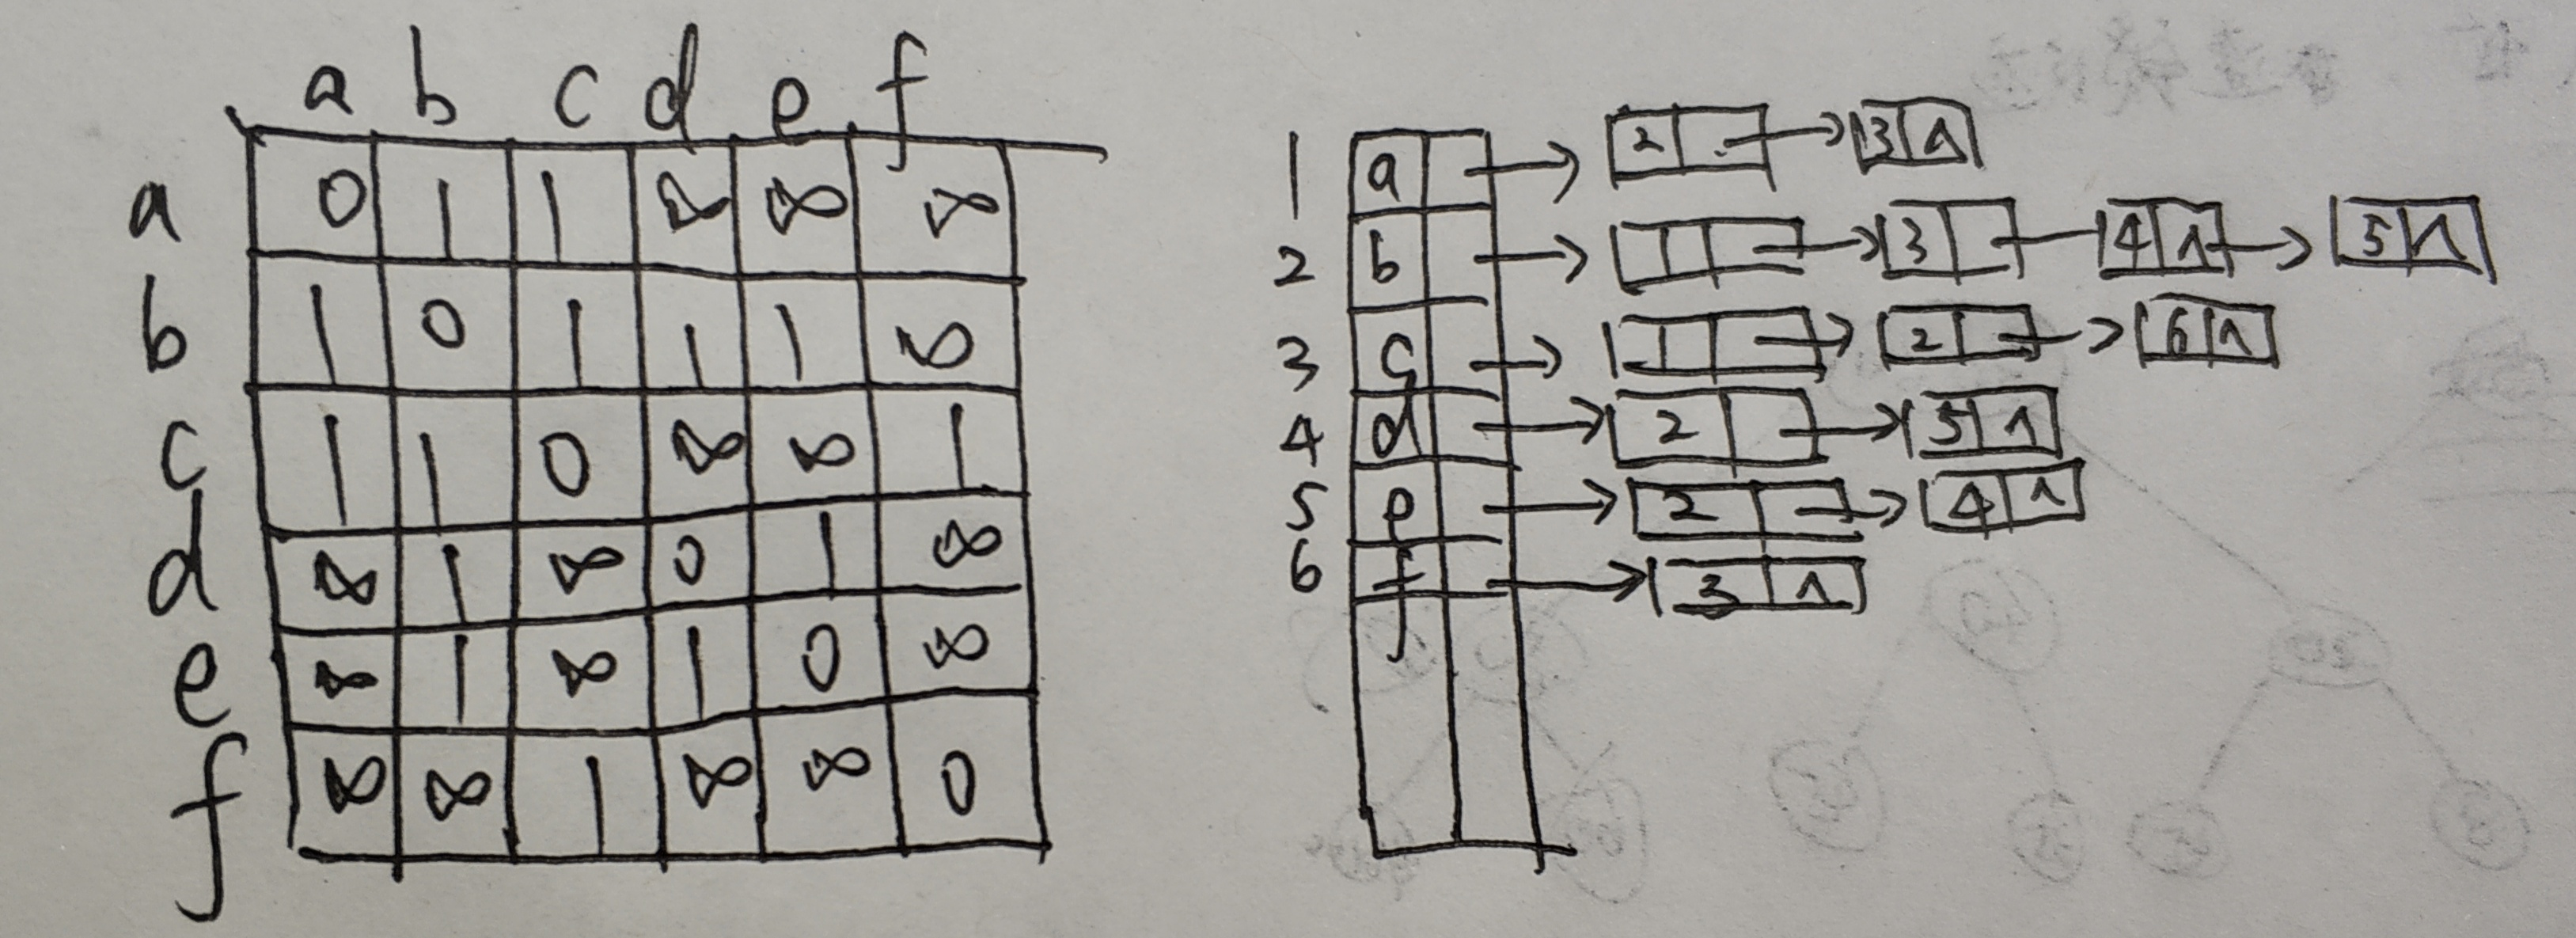 a b c d e f
a 0 1 1 ∞ ∞ ∞
b 1 0 1 1 1 ∞
c 1 1 0 ∞ ∞ 1
d ∞ 1 ∞ 0 1 ∞
e ∞ 1 ∞ 1 0 ∞
f ∞ ∞ 1 ∞ ∞ 0
1 a → 2 → 3 ∧
2 b → 1 → 3 — 4 ∧ → 5 ∧
3 c → 1 → 2 → 6 ∧
4 d → 2 → 5 ∧
5 e → 2 → 4 ∧
6 f → 3 ∧